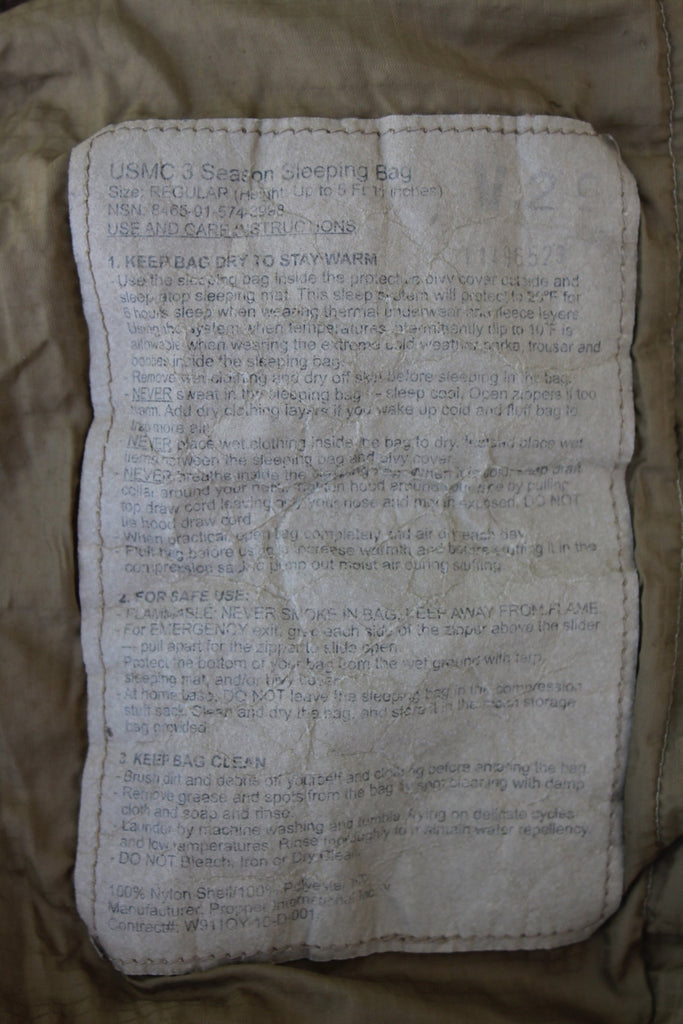 USMC 3 Season Sleeping Bag
Size: REGULAR (Height: Up to 5 Ft 11 inches)
NSN: 8465-01-574-
USE AND CARE INSTRUCTIONS
1. KEEP BAG DRY TO STAY WARM
- Use the sleeping bag inside the protective bivy cover outside and
sleep atop sleeping mat. This sleep system will protect to 20°F for
6 hours sleep when wearing thermal underwear and fleece layers.
Using the system when temperatures intermittently dip to 10°F is
allowable when wearing the extreme cold weather parka, trouser and
booties inside the sleeping bag.
- Remove wet clothing and dry off skin before sleeping in the bag.
- NEVER sweat in the sleeping bag -- sleep cool. Open zippers if too
warm. Add dry clothing layers if you wake up cold and fluff bag to
trap more air.
- NEVER place wet clothing inside the bag to dry. Instead place wet
items between the sleeping bag and bivy cover.
- NEVER breathe inside the sleeping bag. When it is cold, snap draft
collar around your neck, hood around by pulling
top draw cord leaving only your nose and mouth exposed. DO NOT
tie hood draw cord.
- When practical, open bag completely and air dry each day.
- Fluff bag before use to increase warmth and before stuffing it in the
compression sack to pump out moist air during stuffing.
2. FOR SAFE USE:
- FLAMMABLE: NEVER SMOKE IN BAG. KEEP AWAY FROM FLAME.
- For EMERGENCY exit, grip each side of the zipper above the slider
— pull apart for the zipper to slide open.
- Protect the bottom of your bag from the wet ground with tarp,
sleeping mat, and/or bivy cover.
- At home base, DO NOT leave the sleeping bag in the compression
stuff sack. Clean and dry the bag, and store it in the storage
bag provided.
3. KEEP BAG CLEAN
- Brush dirt and debris off yourself and clothing before entering the bag.
- Remove grease and spots from the bag by spot cleaning with damp
cloth and soap and rinse.
- Launder by machine washing and tumble drying on delicate cycles
and low temperatures. Rinse thoroughly to maintain water repellency.
- DO NOT Bleach, Iron or Dry Clean
100% Nylon Shell/100% Polyester
Manufacturer: Propper International
Contract#: W911QY-10-D-001